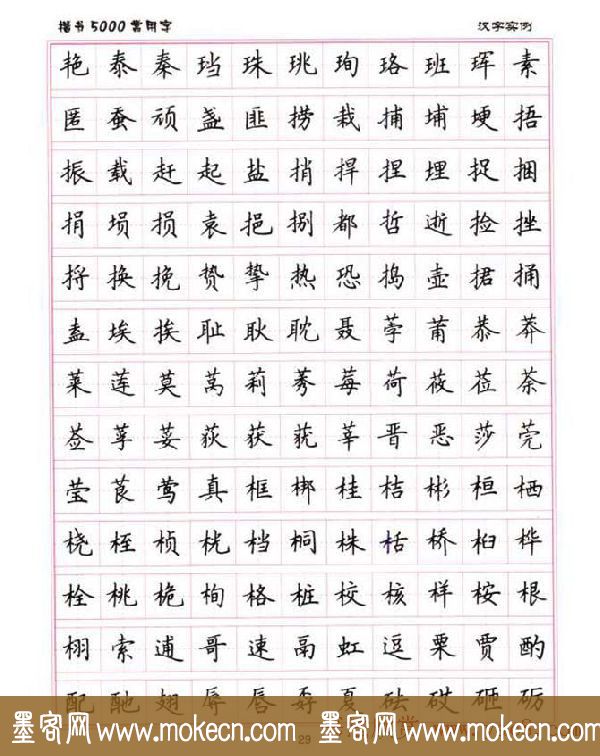 楷书5000常用字 汉字实例
艳 泰 秦 珰 珠 珧 珣 珞 班 珲 素
匿 蚕 顽 盏 匪 捞 栽 捕 埔 埂 捂
振 载 赶 起 盐 捎 捍 捏 埋 捉 捆
捐 埙 损 袁 挹 捌 都 哲 逝 捡 挫
捋 换 挽 贽 挚 热 恐 捣 壶 捃 捅
盍 埃 挨 耻 耿 耽 聂 荸 莆 恭 莽
莱 莲 莫 莴 莉 莠 莓 荷 莜 莅 荼
莶 莩 荽 荻 获 莸 莘 晋 恶 莎 莞
莹 莨 莺 真 框 梆 桂 桔 彬 桓 栖
桡 桎 桢 桄 档 桐 株 栝 桥 桕 桦
栓 桃 桅 栒 格 桩 校 核 样 桉 根
栩 索 逋 哥 速 鬲 虹 逗 栗 贾 酌
配 酏 翅 辱 唇 孬 夏 砝 砹 砸 砺
墨客网 www.mokecn.com 墨客网 www.mokecn.com
29